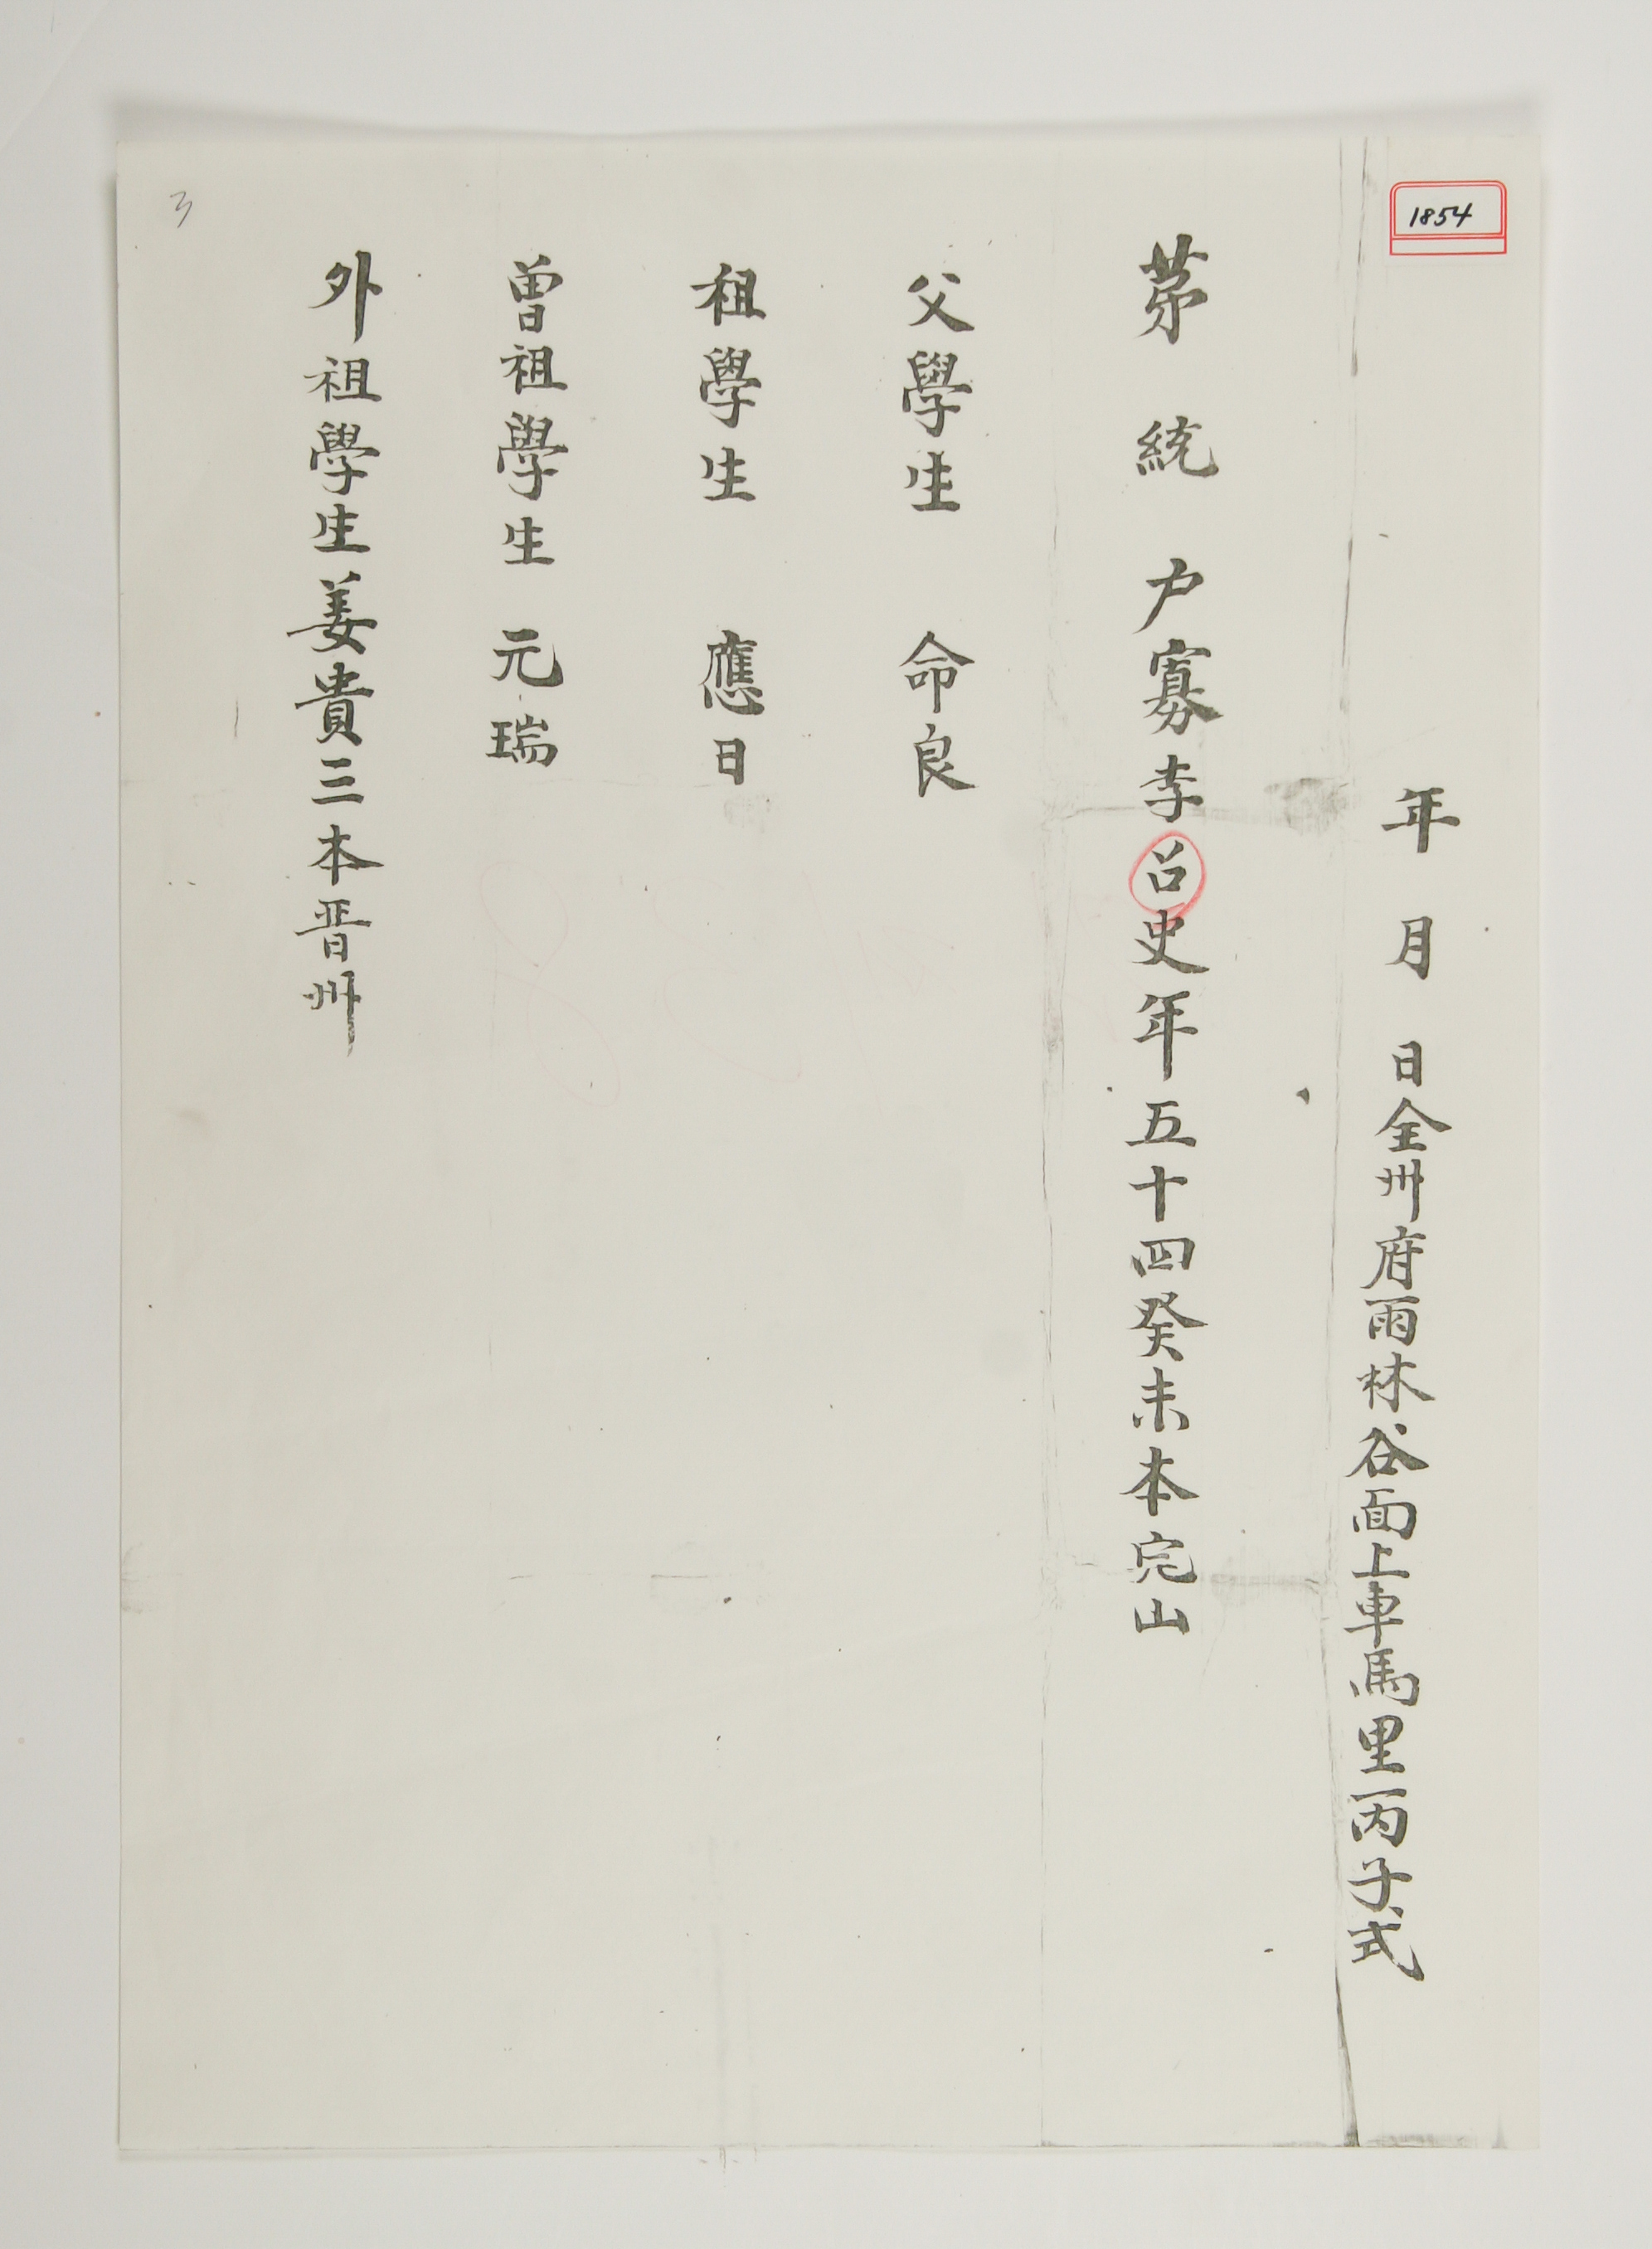 1854
年 月 日全州府雨林谷面上車馬里丙子式
茅 統 户寡李召史年五十四癸未本完山
父學生 命良
祖學生 應日
曽祖學生 元瑞
外祖學生姜貴三本晋州
3